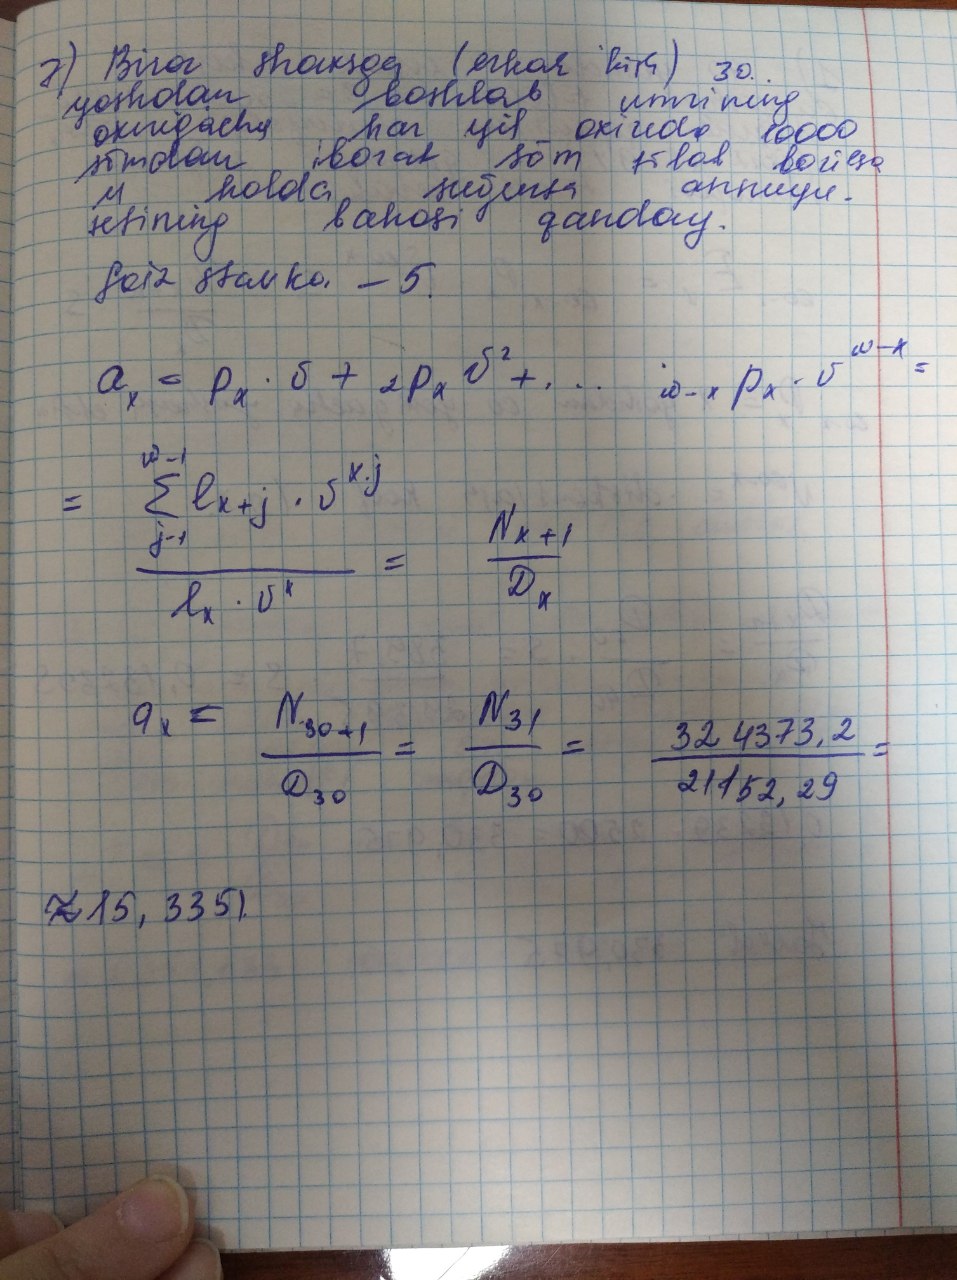 7) Biror shaxsga (erkak kishi) 30
yoshdan boshlab umrining
oxirigacha har yil oxirida 10000
so'mdan iborat so'm to'lab borilsa
u holda
bahosi qanday.
foiz stavka - 5.
aₓ = pₓ · v + ₂pₓ v² + ... w-x pₓ · v^(w-x) =
= (Σ_(j-1)^(w-1) l_(x+j) · v^(x·j)) / (lₓ · vˣ) = N_(x+1) / Dₓ
aₓ = N_(30+1) / D₃₀ = N₃₁ / D₃₀ = 324373,2 / 21152,29 =
≈ 15,3351.